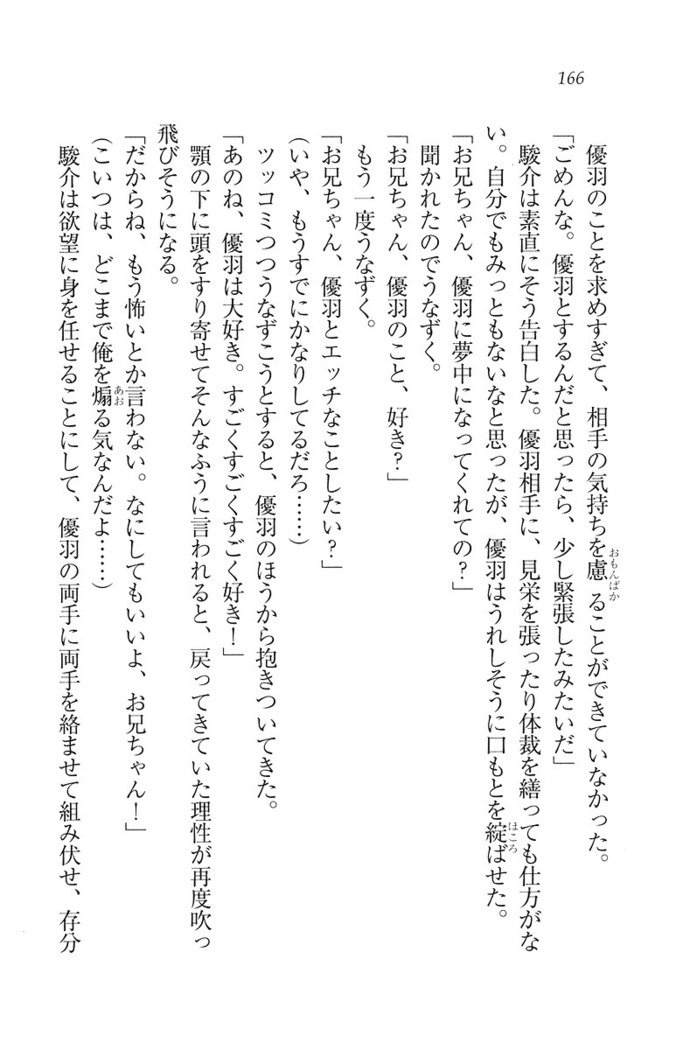 166
優羽のことを求めすぎて、相手の気持ちを慮ることができていなかった。
「ごめんな。優羽とするんだと思ったら、少し緊張したみたいだ」
駿介は素直にそう告白した。優羽相手に、見栄を張ったり体裁を繕っても仕方がな
い。自分でもみっともないなと思ったが、優羽はうれしそうに口もとを綻ばせた。
「お兄ちゃん、優羽に夢中になってくれての?」
聞かれたのでうなずく。
「お兄ちゃん、優羽のこと、好き?」
もう一度うなずく。
「お兄ちゃん、優羽とエッチなことしたい?」
(いや、もうすでにかなりしてるだろ……)
ツッコミつつうなずこうとすると、優羽のほうから抱きついてきた。
「あのね、優羽は大好き。すごくすごくすごく好き!」
顎の下に頭をすり寄せてそんなふうに言われると、戻ってきていた理性が再度吹っ
飛びそうになる。
「だからね、もう怖いとか言わない。なにしてもいいよ、お兄ちゃん!」
(こいつは、どこまで俺を煽る気なんだよ……)
駿介は欲望に身を任せることにして、優羽の両手に両手を絡ませて組み伏せ、存分